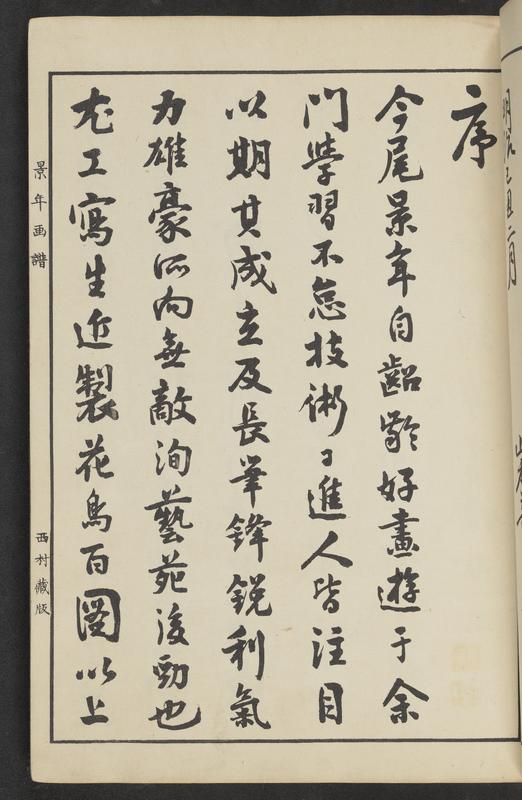 序
今尾景年自齠齡好畫遊于余
門學習不怠技術日進人皆注目
以期其成立及長筆鋒銳利氣
力雄豪所向無敵洵藝苑後勁也
尤工寫生近製花鳥百圖以上
景年画譜
西村藏版